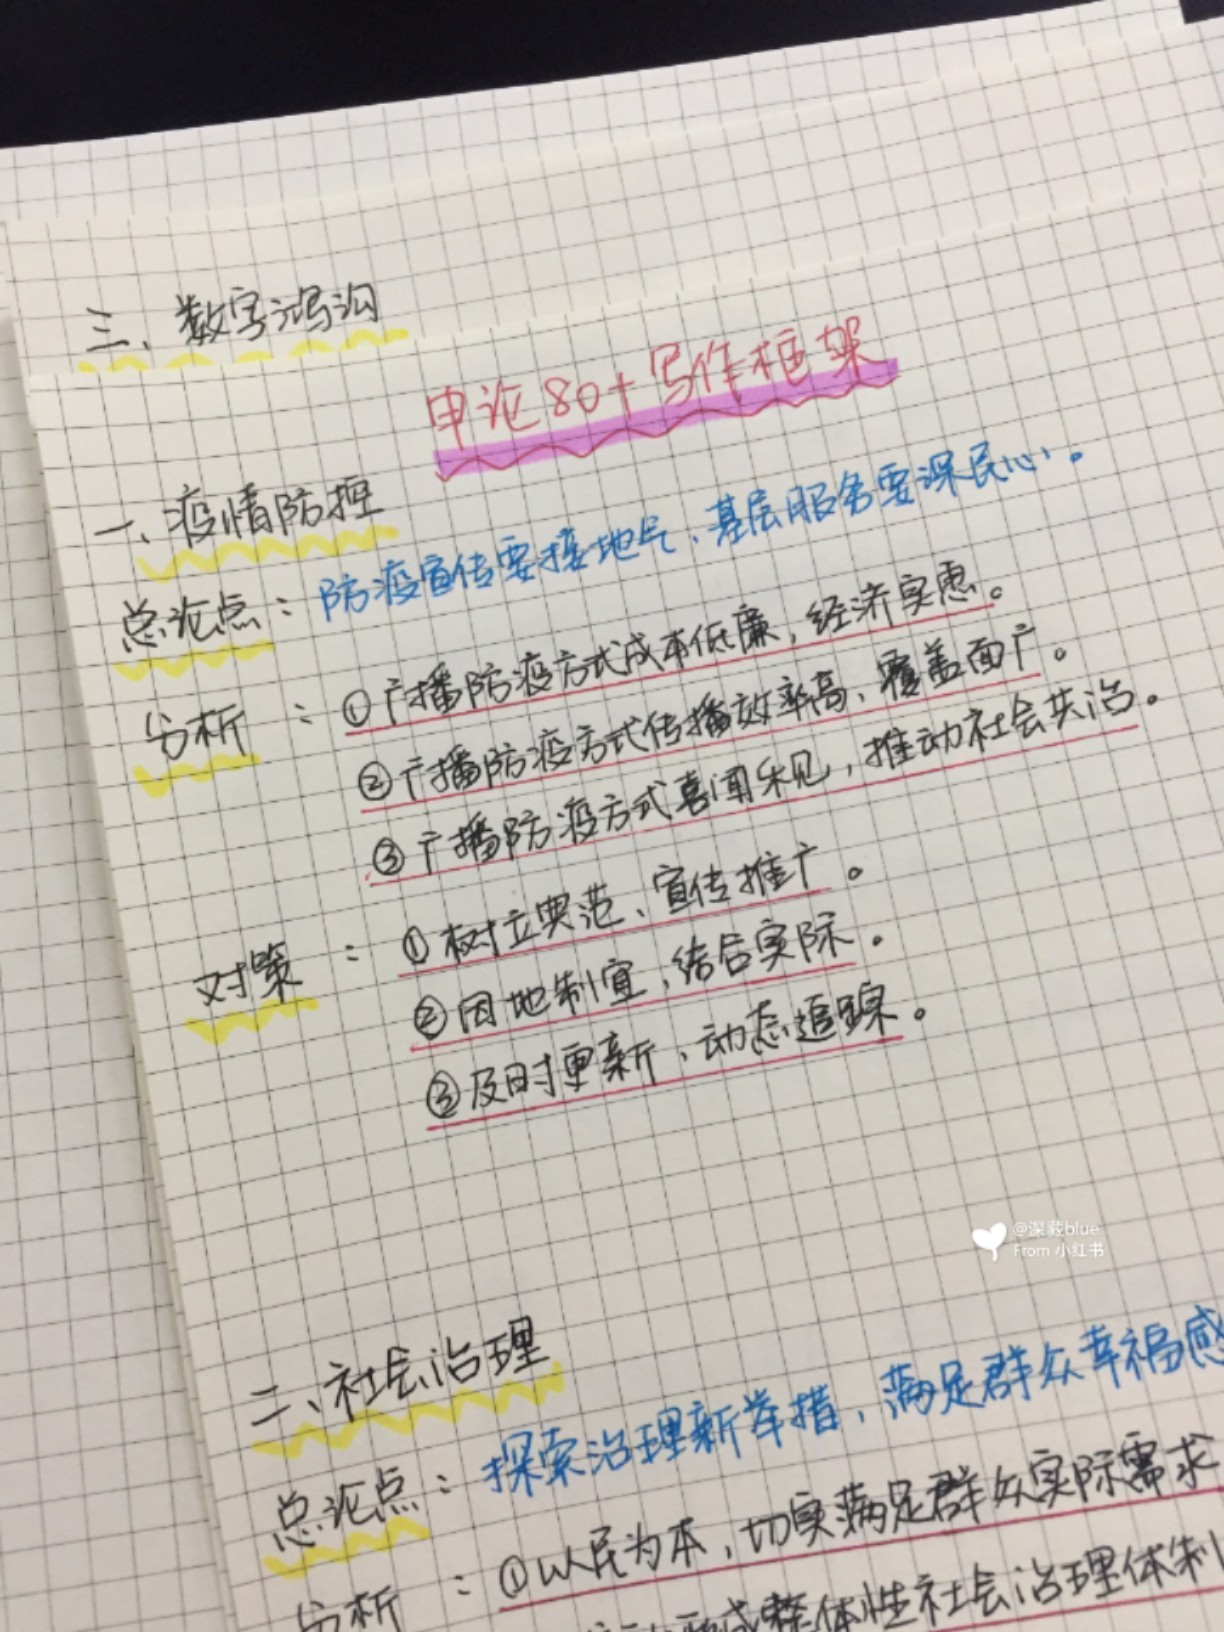 三、数字鸿沟
申论80+写作框架
一、疫情防控
总论点：防疫宣传要接地气、基层服务要深民心。
分析：①广播防疫方式成本低廉，经济实惠。
②广播防疫方式传播效率高、覆盖面广。
③广播防疫方式喜闻乐见，推动社会共治。
对策：①树立典范、宣传推广。
②因地制宜，结合实际。
③及时更新，动态追踪。
@深巷blue
From 小红书
二、社会治理
总论点：探索治理新举措，满足群众幸福感
分析：①以民为本，切实满足群众实际需求
整体性社会治理体制